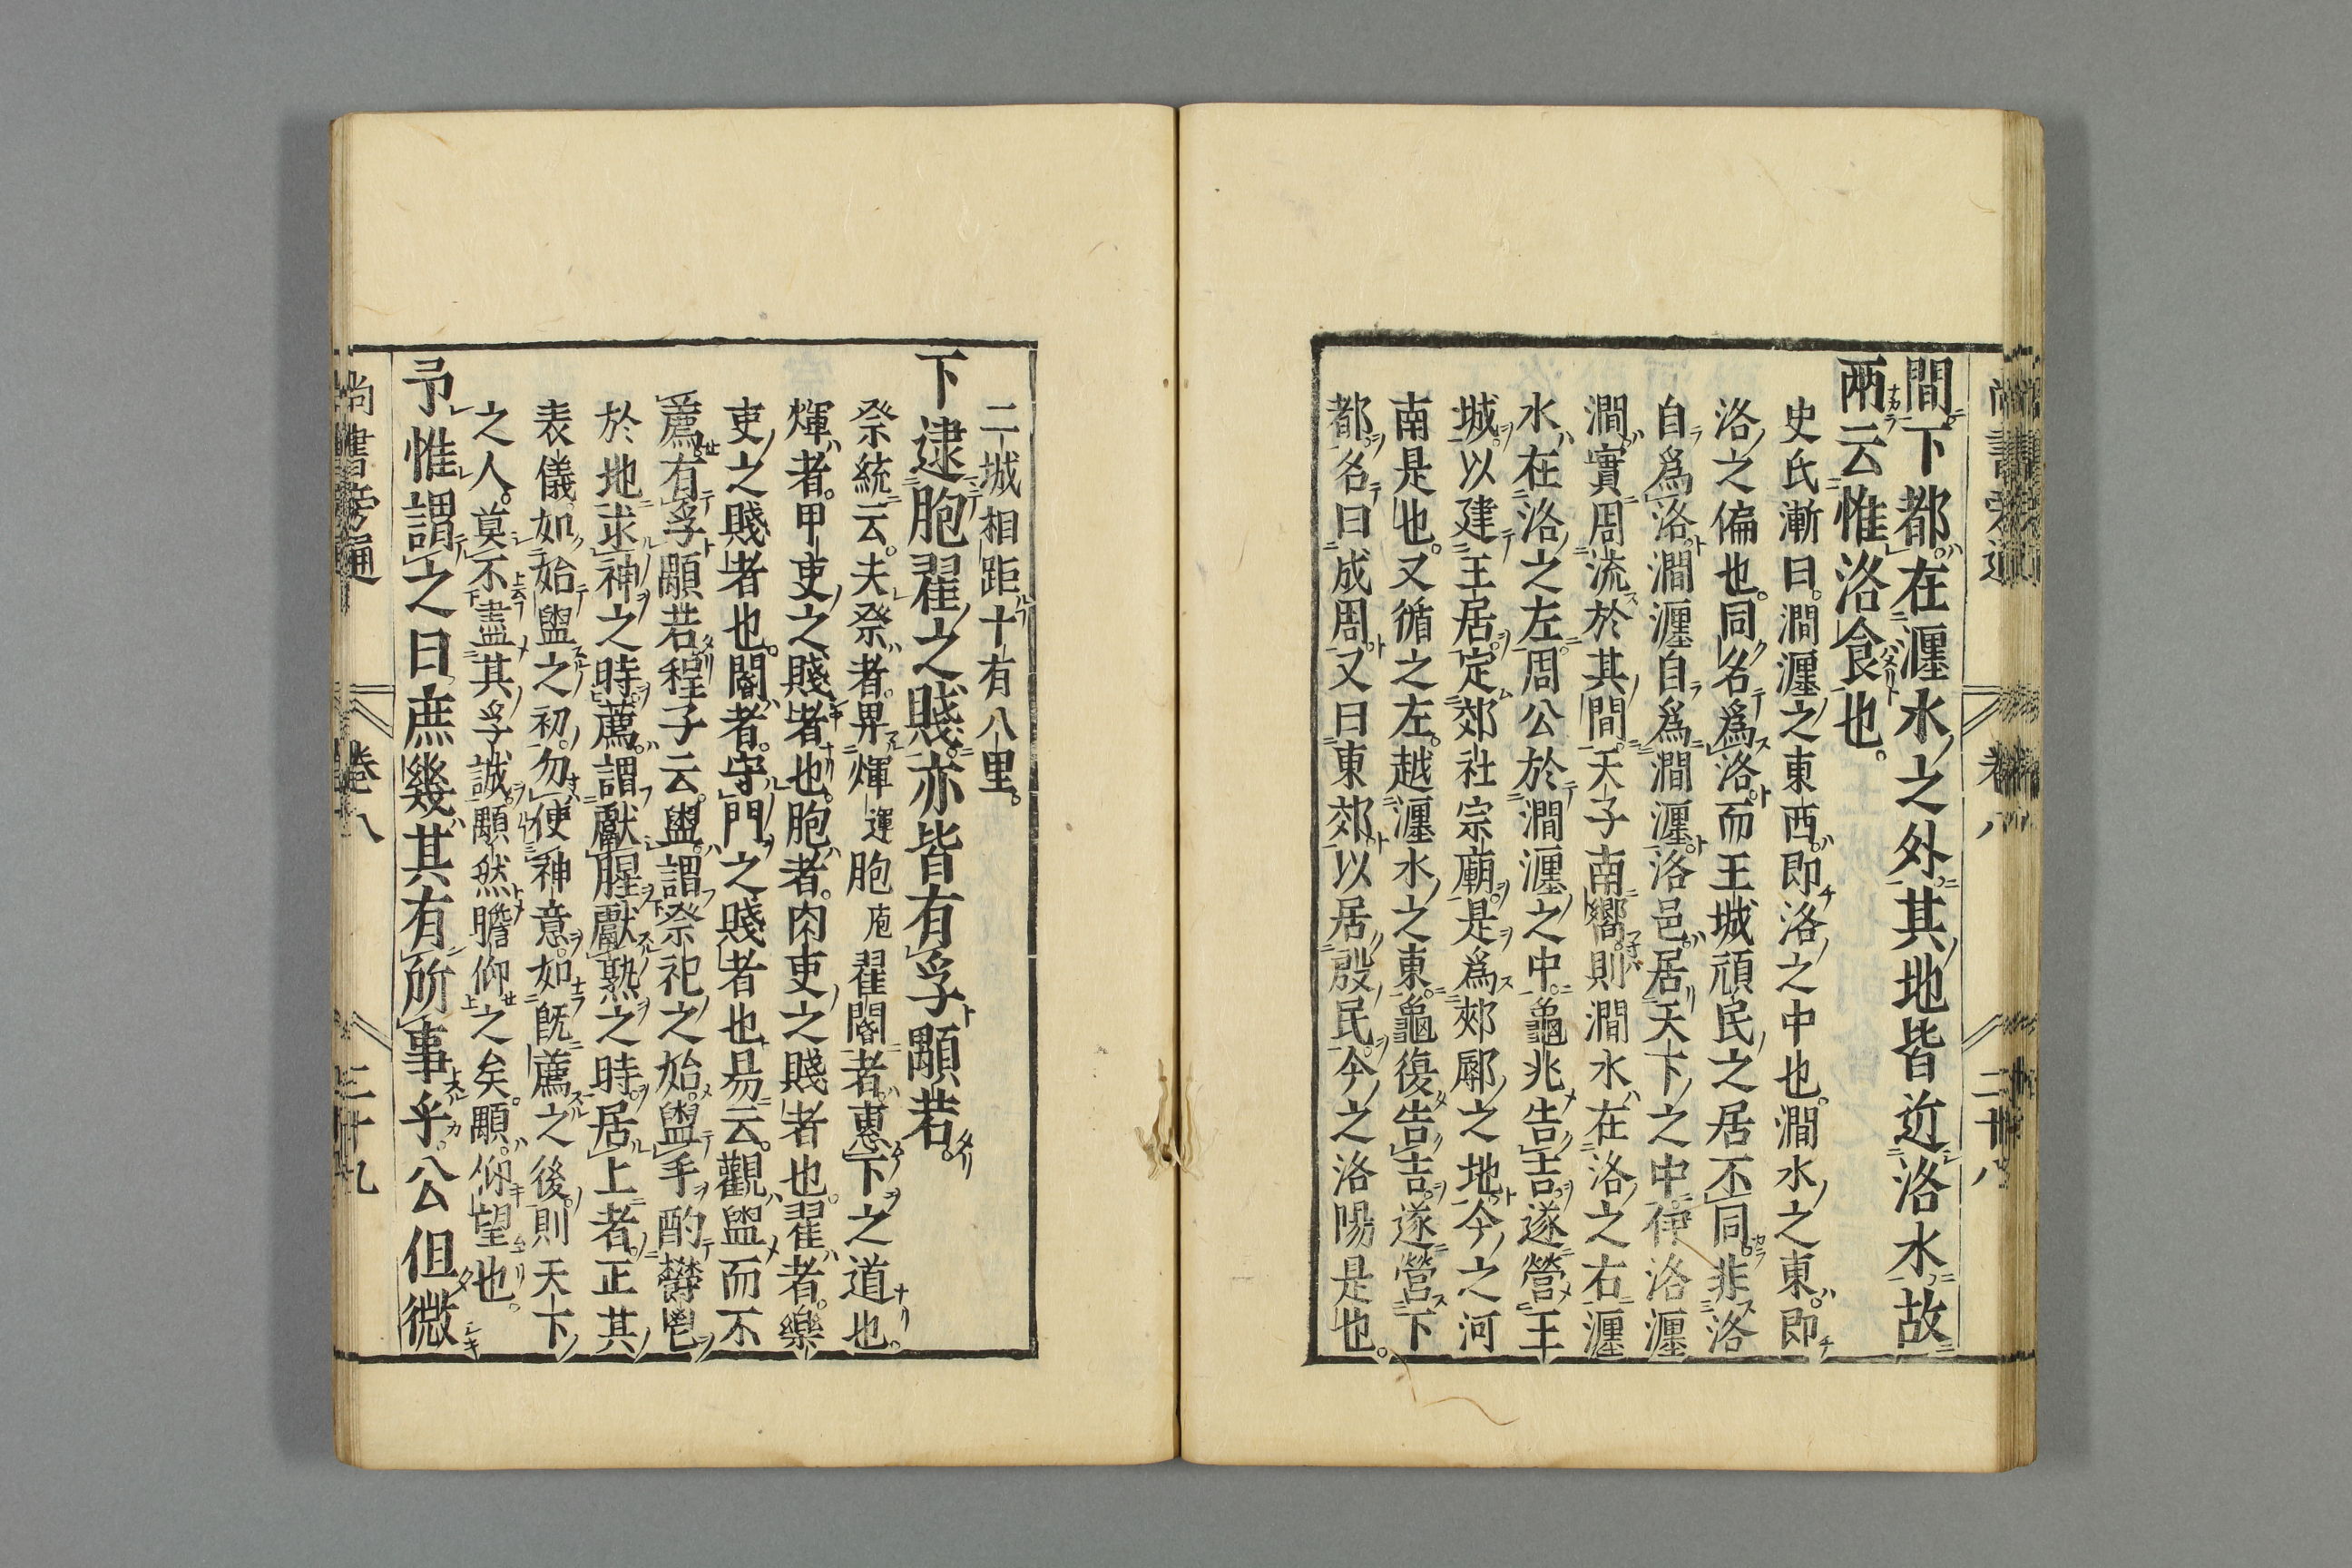 間下都在瀍水之外其地皆近洛水故
兩云惟洛食也
史氏漸曰澗瀍之東西即洛之中也澗水之東即
洛之偏也同名爲洛而王城頑民之居不同非洛
自爲洛澗瀍自爲澗瀍洛邑居天下之中伊洛瀍
澗實周流於其間天子南嚮則澗水在洛之右瀍
水在洛之左周公於澗瀍之中龜兆告吉遂營王
城以建王居定郊社宗廟是爲郟鄏之地今之河
南是也又循之左越瀍水之東龜復告吉遂營下
都名曰成周又曰東郊以居殷民今之洛陽是也
二城相距十有八里
下逮胞翟之賤亦皆有孚顒若
祭統云夫祭者畀煇運胞庖翟閽者惠下之道也
煇者甲吏之賤者也胞者肉吏之賤者也翟者樂
吏之賤者也閽者守門之賤者也易云觀盥而不
薦有孚顒若程子云盥謂祭祀之始盥手酌鬱鬯
於地求神之時薦謂獻腥獻熟之時居上者正其
表儀如始盥之初勿使神意如旣薦之後則天下
之人莫不盡其孚誠顒然瞻仰之矣顒仰望也
予惟謂之曰庶幾其有所事乎公但微
尚書旁通 卷八 二十九